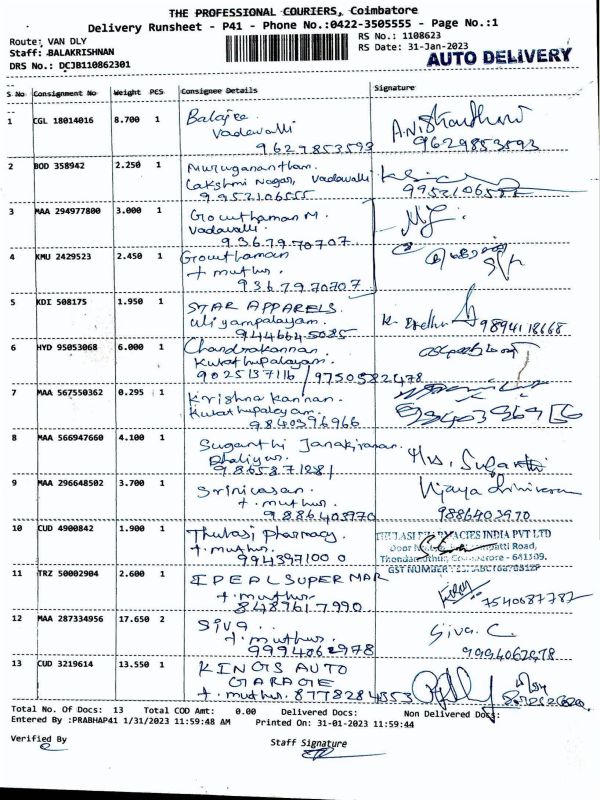 THE PROFESSIONAL COURIERS, Coimbatore
Delivery Runsheet - P41 - Phone No.:0422-3505555 - Page No.:1
Route: VAN DLY
RS No.: 1108623
Staff: BALAKRISHNAN
RS Date: 31-Jan-2023
AUTO DELIVERY
DRS No.: DCJB110862301
S No Consignment No Weight PCS Consignee Details Signature
1 CGL 18014016 8.700 1 Balajee
Vadavalli
9629853593
9629853593
2 BOD 358942 2.250 1 Muruganantham.
Lakshmi Nagar, Vadavalli
9952106555
3 MAA 294977800 3.000 1 Gowthaman M.
Vadavalli
9367970707
4 KMU 2429523 2.450 1 Gowthaman
t muthur.
9367970707
5 KDI 508175 1.950 1 STAR APPARELS.
uliyampalayam.
9444645085
9894118668
6 HYD 95053068 6.000 1 Chandrakannan
Kurathupalayam.
9025137116 / 9750582478
7 MAA 567550362 0.295 1 Krishna Kannan.
Kurathupalayam.
9840396966
8 MAA 566947660 4.100 1 Suganthi Janakiraman.
9865871281
Mrs. Suganthi
9 MAA 296648502 3.700 1 Srinivasan.
t. muthur.
9886403970
Vijaya Srinivasan
9886403970
10 CUD 4900842 1.900 1 Thulasi Pharmacy.
t. muthur.
9943971000
THULASI PHARMACIES INDIA PVT LTD
Thondamuthur, Coimbatore - 641109.
GST NUMBER
11 TRZ 50002904 2.600 1 IDEAL SUPER MAR
t. muthur.
8489617990
7540087787
12 MAA 287334956 17.650 2 Siva.
t. muthur.
9994062978
Siva. C.
9994062978
13 CUD 3219614 13.550 1 KINGS AUTO
GARAGE
t. muthur. 8778284353
Total No. Of Docs: 13 Total COD Amt: 0.00 Delivered Docs: Non Delivered Docs:
Entered By :PRABHAP41 1/31/2023 11:59:48 AM Printed On: 31-01-2023 11:59:44
Verified By
Staff Signature